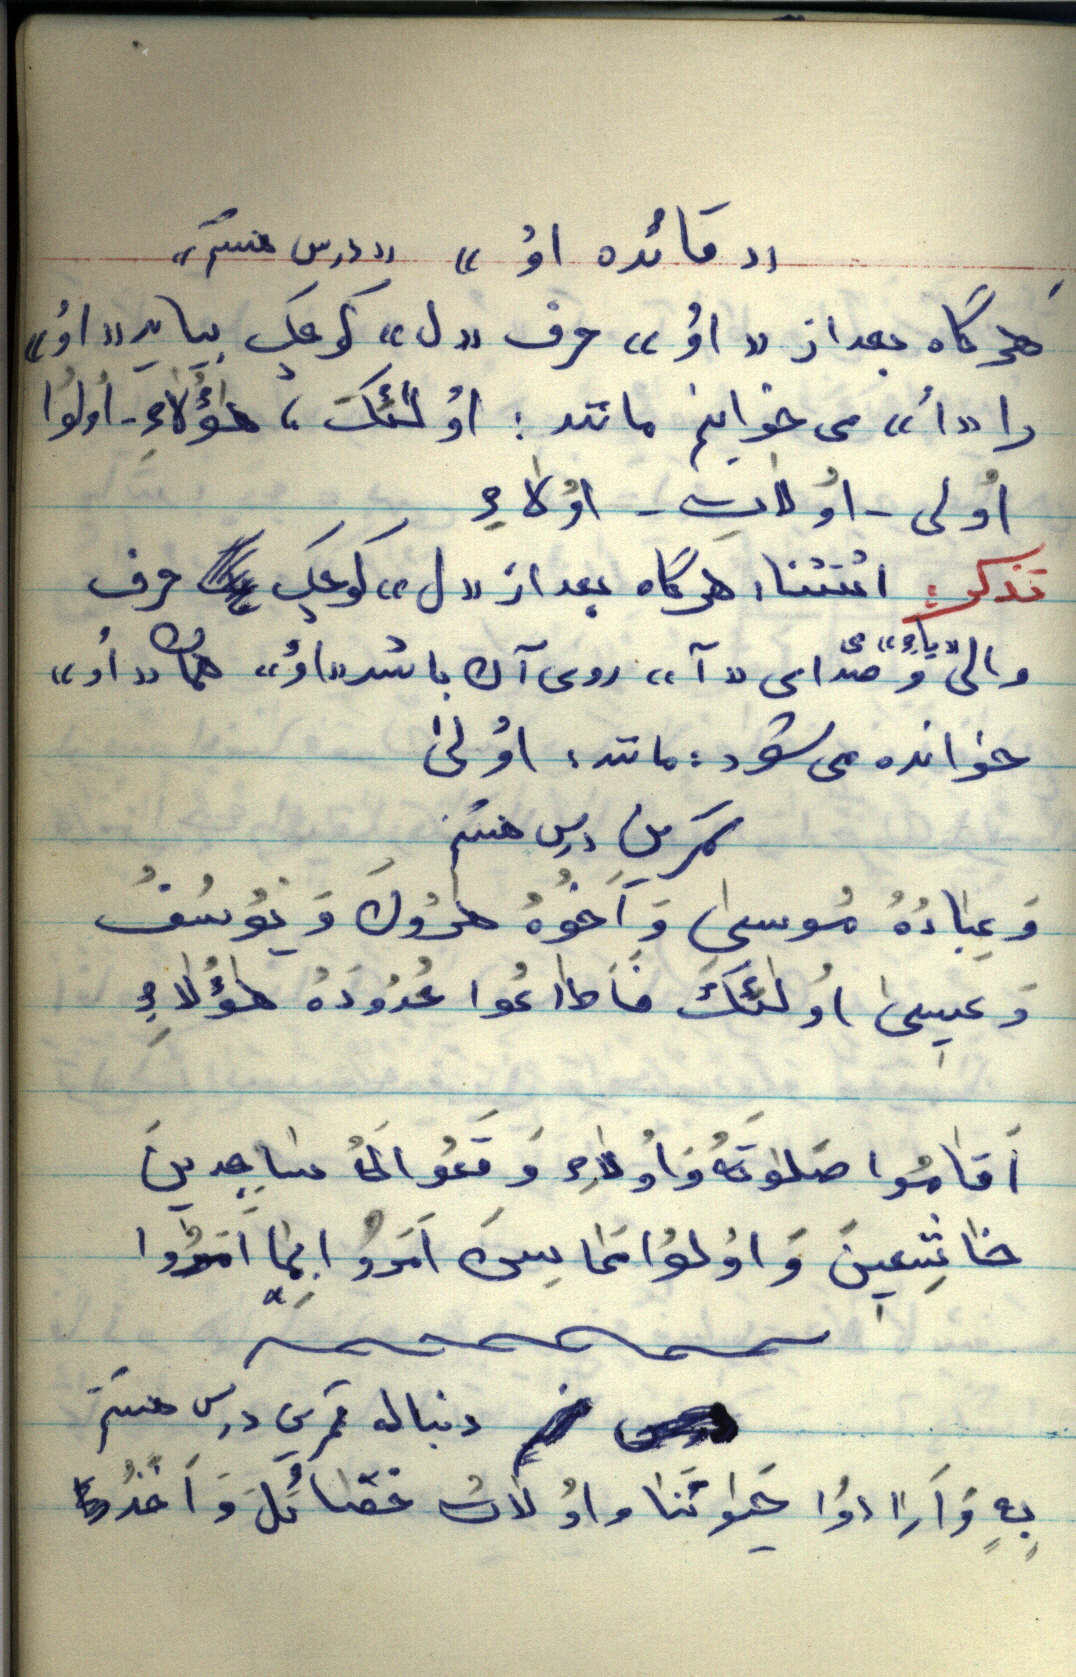 «قائده اوُ» «درس هشتم»
هر گاه بعد از «اوُ» حرف «ل» کوچک بیاید «اوُ»
را «اُ» می خوانیم مانند : اوُلٰئِکَ ، هٰؤُلاٰءِ - اُولُوا
اوُلی - اوُلاتِ - اوُلاٰءِ
تذکر: استثناء هر گاه بعد از «ل» کوچک حرف
والیٰ و «یاء» صدای «آ» روی آن باشد «اوُ» همان «اوُ»
خوانده می شود : مانند : اوُلیٰ
تمرین درس هشتم
وَ عِبٰادُهُ مُوسیٰ وَ اَخُوهُ هٰرُونَ وَ یُوسُفُ
وَ عیسیٰ اوُلٰئِکَ فَاَطٰاعُوا حُدُودَهُ هٰؤُلاٰءِ
اَقٰامُوا صَلٰوتَهُ وَ اوُلاٰءِ وَ قَعُوا لَهُ سٰاجِدینَ
خٰاشِعینَ وَ اوُلُوا اَمَرُوا بِمٰا اُمِرُوا
دنباله تمرین درس هشتم
بِهِ وَ اَرٰادُوا حَیٰوتَنٰا و اوُلاتُ خَصٰائِلَ وَ